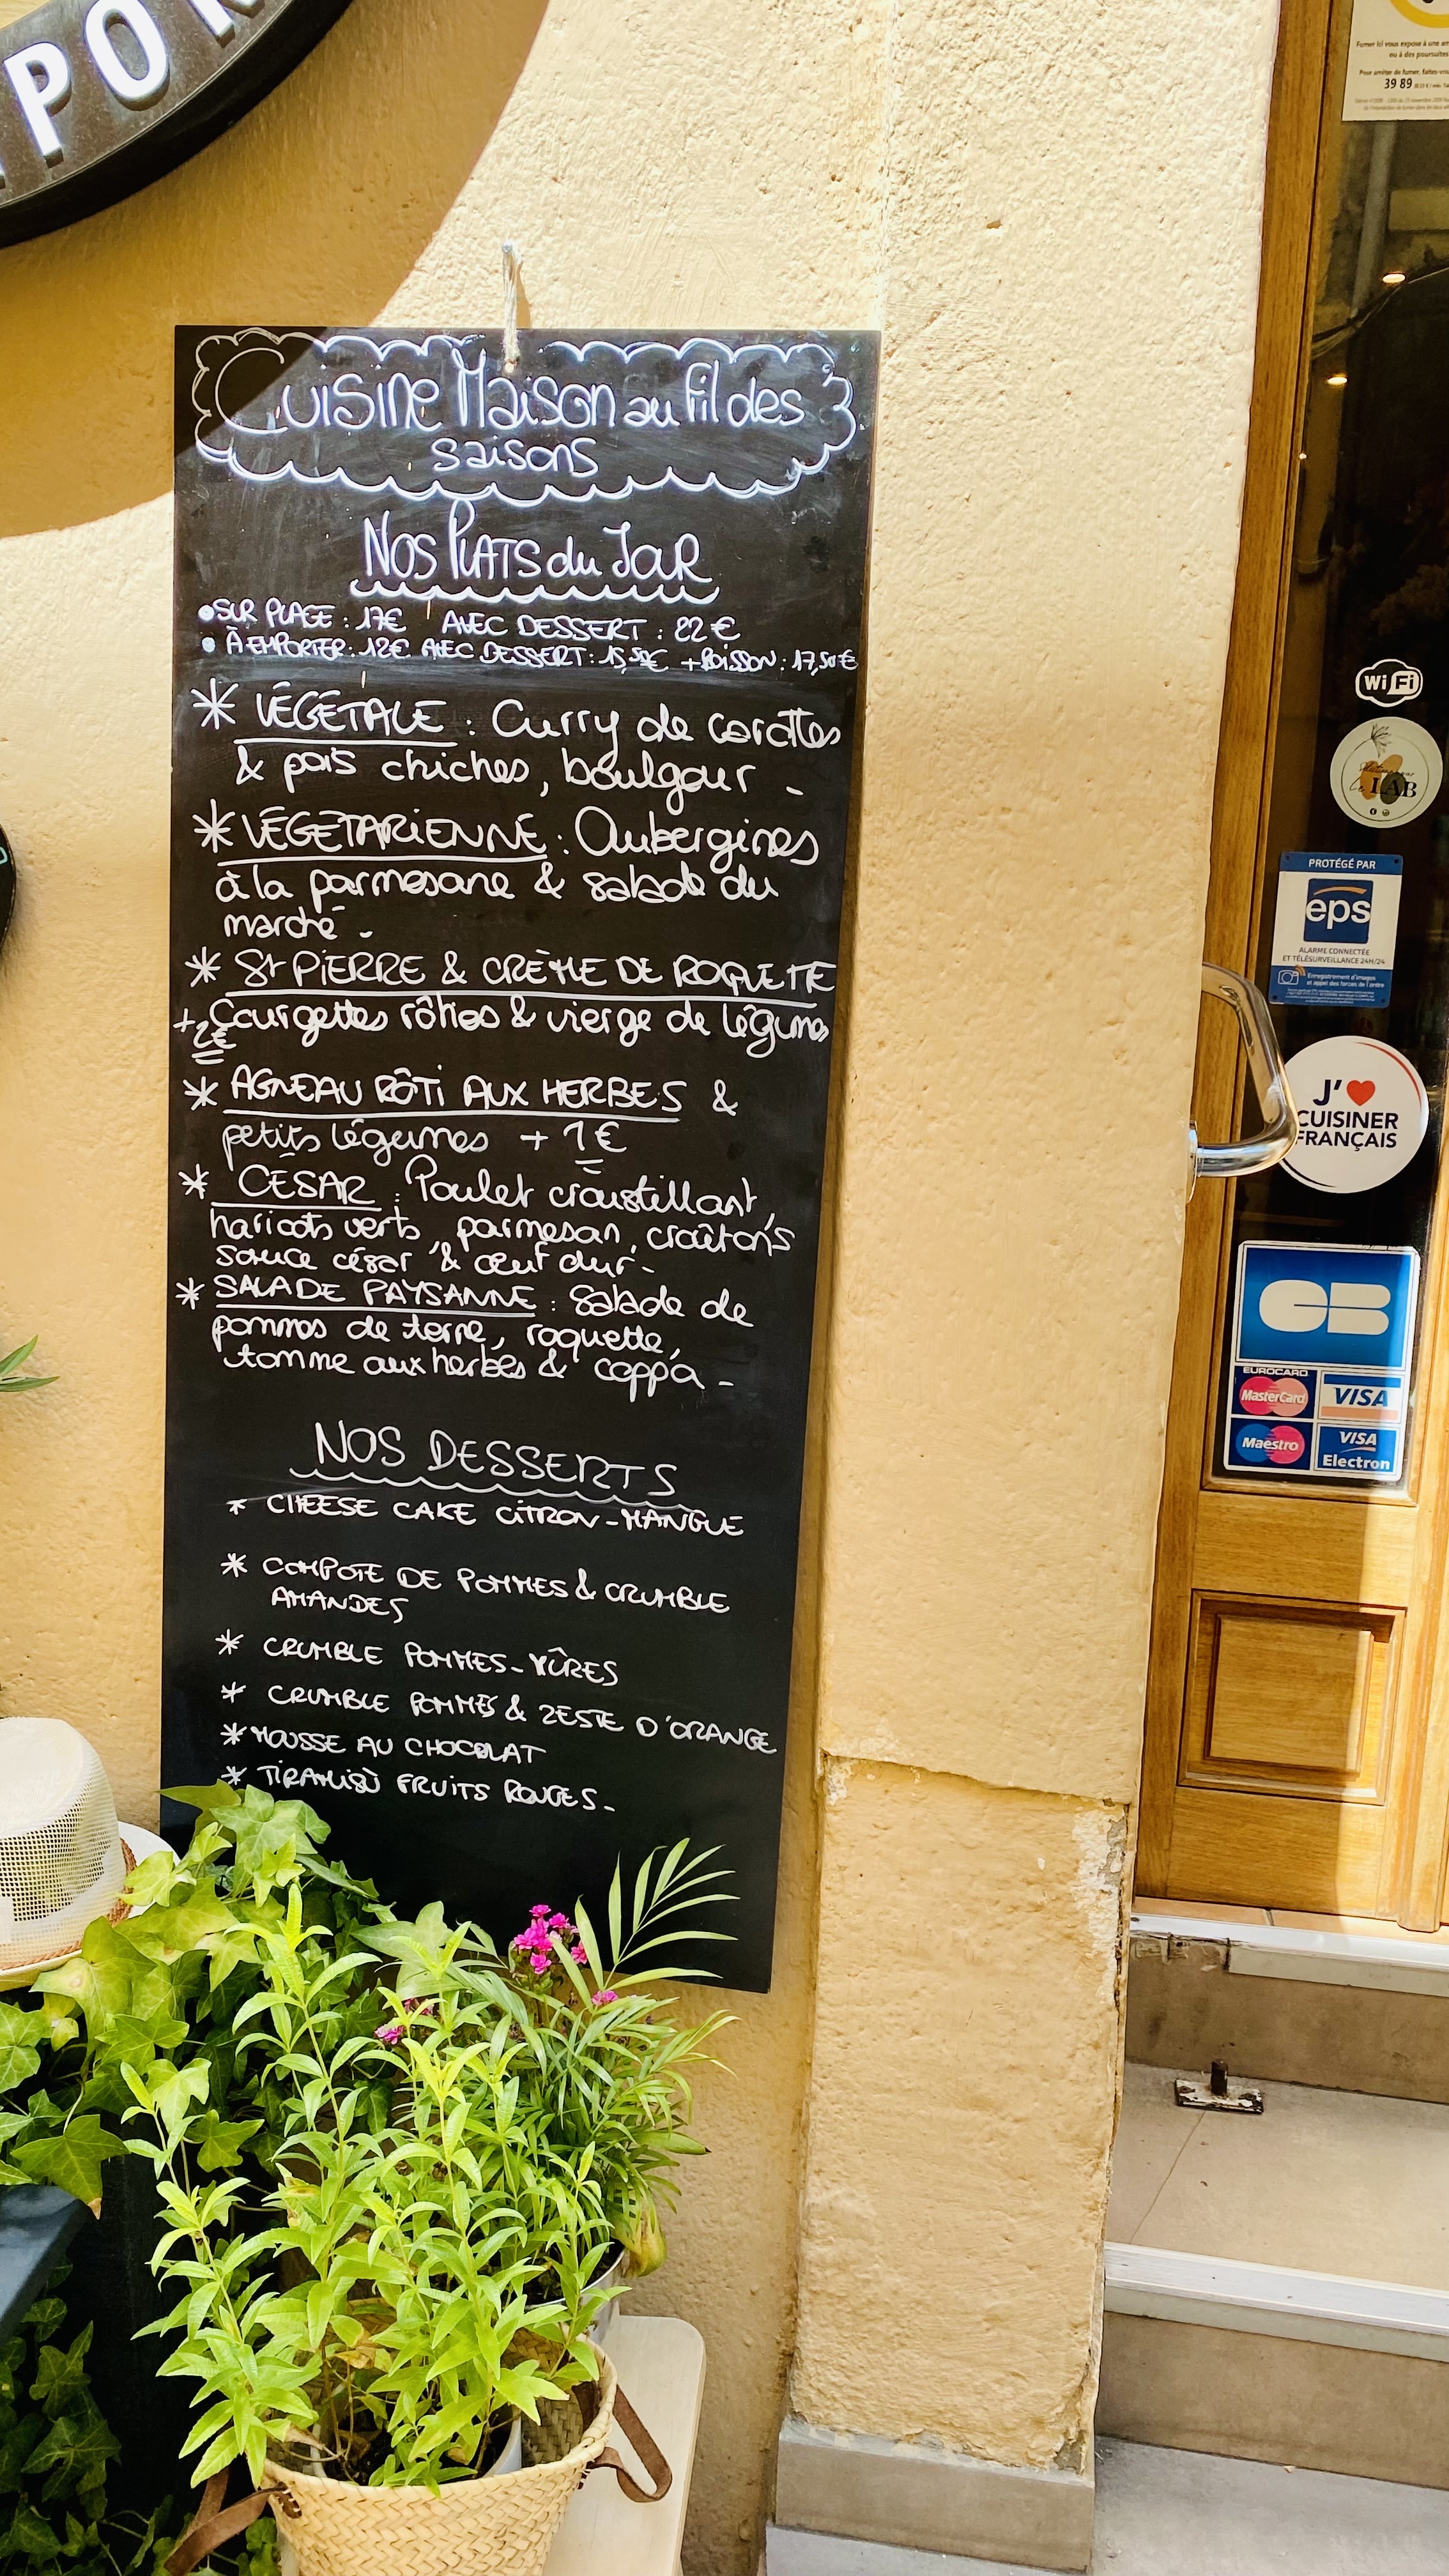 POR
Cuisine Maison au fil des
saisons
Nos Plats du Jour
• SUR PLACE : 17€ AVEC DESSERT : 22 €
• À EMPORTER : 12€ AVEC DESSERT : 15,50€ + BOISSON : 17,50€
* VÉGÉTALE : Curry de carottes
& pois chiches, boulgour -
* VÉGÉTARIENNE : Aubergines
à la parmesane & salade du
marché -
* St PIERRE & CRÈME DE ROQUETTE
+ 2€ Courgettes rôties & vierge de légumes
* AGNEAU RÔTI AUX HERBES &
petits légumes + 1€
* CÉSAR : Poulet croustillant,
haricots verts, parmesan, croûtons
sauce césar & œuf dur -
* SALADE PAYSANNE : Salade de
pommes de terre, roquette,
tomme aux herbes & coppa -
NOS DESSERTS
* CHEESE CAKE CITRON-MANGUE
* COMPOTE DE POMMES & CRUMBLE
AMANDES
* CRUMBLE POMMES-MÛRES
* CRUMBLE POMMES & ZESTE D'ORANGE
* MOUSSE AU CHOCOLAT
* TIRAMISÙ FRUITS ROUGES -
Fumer ici vous expose à une
ou à des poursuites
Pour arrêter de fumer, faites-vous
39 89
WiFi
Le LAB
PROTÉGÉ PAR
eps
ALARME CONNECTÉE
ET TÉLÉSURVEILLANCE 24H/24
Enregistrement d'images
et appel des forces de l'ordre
J'❤
CUISINER
FRANÇAIS
CB
EUROCARD
MasterCard VISA
Maestro VISA
Electron